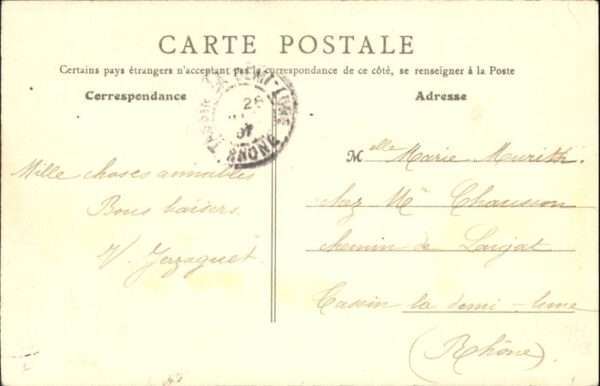 CARTE POSTALE
Certains pays étrangers n'acceptant pas la correspondance de ce côté, se renseigner à la Poste
Correspondance
Adresse
TASSIN LA DEMI-LUNE
26
07
RHONE
Mille choses aimables
Bons baisers
V.
Melle Marie
chez Mr Chausson
chemin de
Tassin la demi-lune
(Rhône)